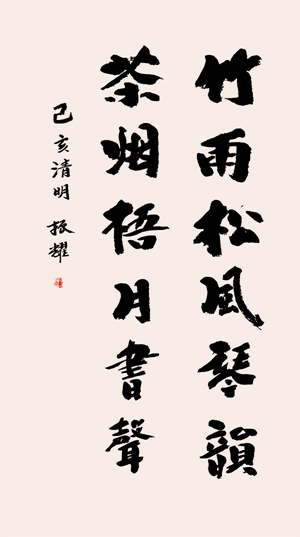 竹雨松風琴韻
茶烟梧月書聲
己亥清明 振耀